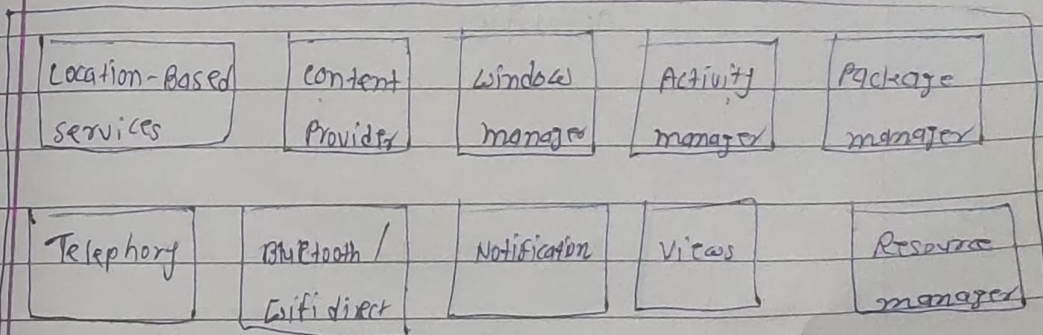 Location-Based
services
Content
Provider
Window
manager
Activity
manager
Package
manager
Telephony
Bluetooth /
Wifi direct
Notification
Views
Resource
manager